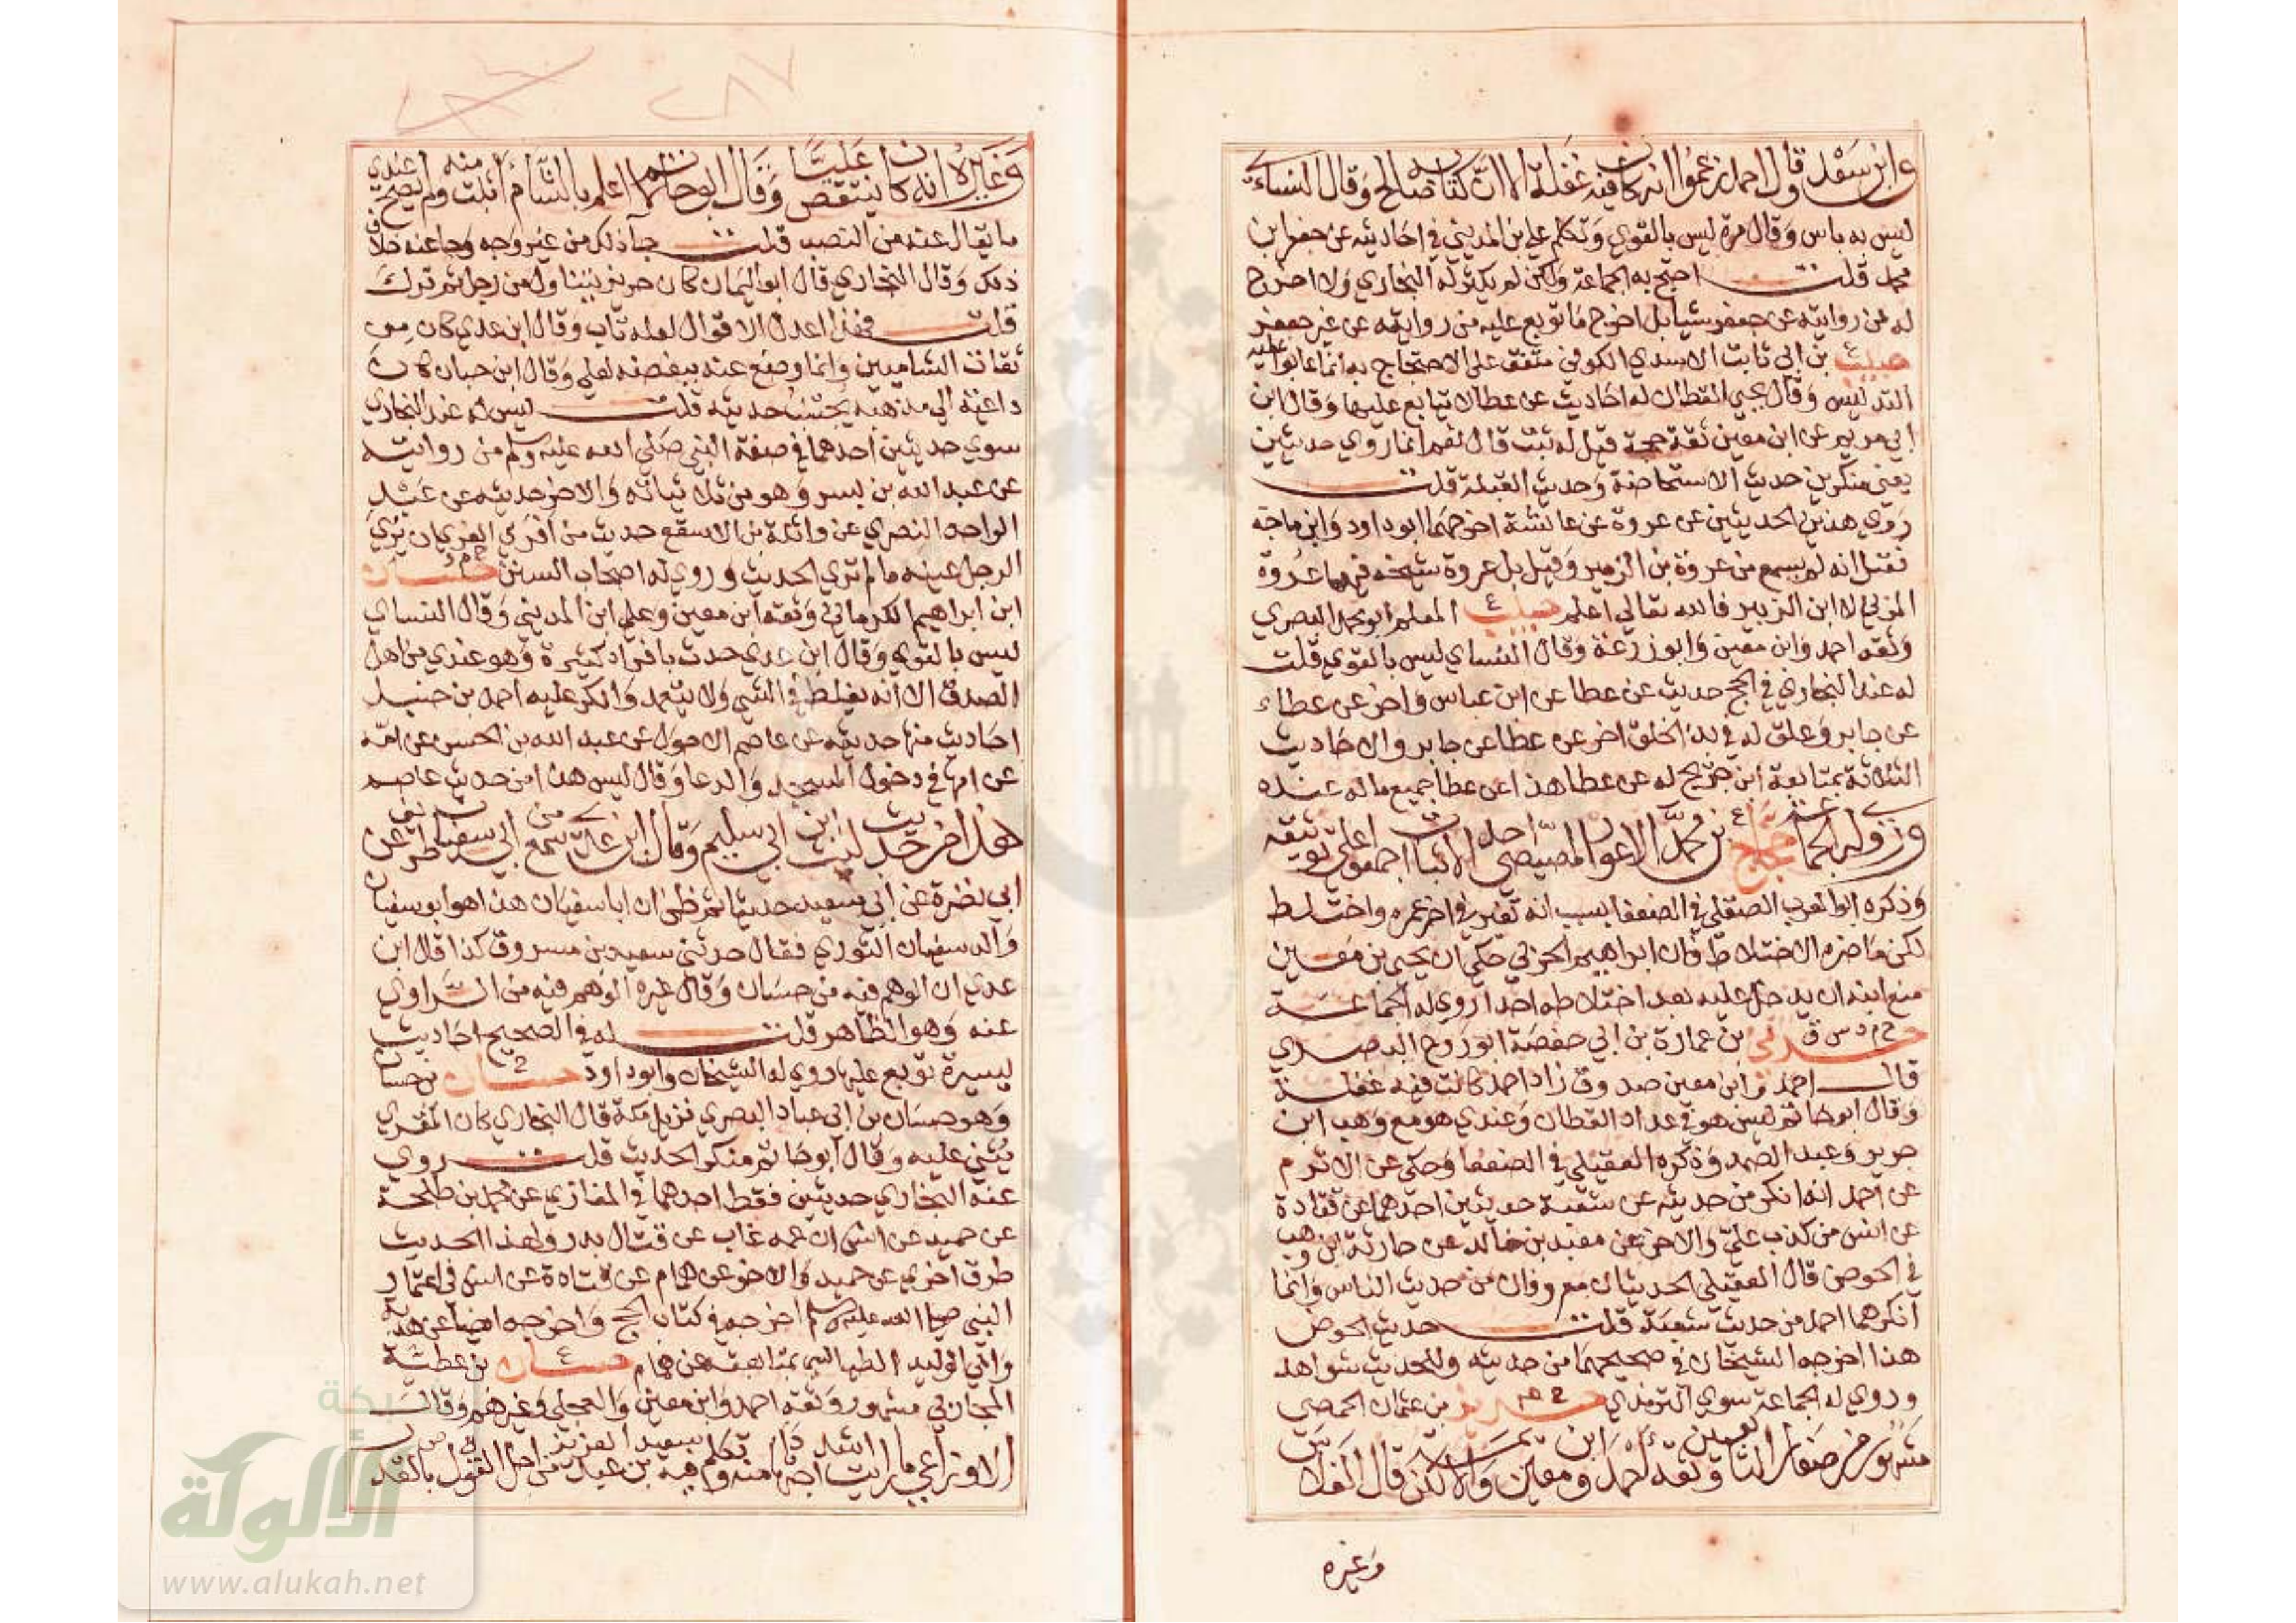 وابن سعد وقال احمد زعموا انه كان فيه غفلة الا ان كتابه صالح وقال النساءي
ليس به باس وقال مرة ليس بالقوي وتكلم علي بن المديني في احاديثه عن جعفر ابن
محمد قلت احتج به الجماعة ولكن لم يكثر له البخاري ولا اخرج
له من روايته عن جعفر شيا بل اخرج ما توبع عليه من روايته عن غير جعفر
حبيب ع بن ابي ثابت الاسدي الكوفي متفق على الاحتجاج به انما عابوا عليه
التدليس وقال يحيي القطان له احاديث عن عطا لا يتابع عليها وقال ابن
ابي مريم عن ابن معين ثقة حجة قيل له ثبت قال نعم انما روي حديثين
يعني منكرين حديث الاستحاضة وحديث القبلة قلت
روي هذين الحديثين عن عروة عن عائشة اخرجهما ابو داود وابن ماجه
فقيل انه لم يسمع من عروة بن الزبير وقيل بل عروة شيخه فيهما عروة
المزني لا ابن الزبير فالله تعالي اعلم حبيب ع المعلم ابو محمد البصري
وثقه احمد وابن معين وابو زرعة وقال النساي ليس بالقوي قلت
له عند البخاري في الحج حديث عن عطا عن ابن عباس واخر عن عطاء
عن جابر وعلق له في بدء الخلق اخر عن عطا عن جابر والاحاديث
الثلاثة بمتابعة ابن جريج له عن عطا هذا عن عطا جميع ما له عنده
وروي له الجماعة حجاج ع بن محمد الاعور المصيصي احد الاثبات اجمعوا علي توثيقه
وذكره ابو العرب الصقلي في الضعفا بسبب انه تغير في اخر عمره واختلط
لكن ما ضره الاختلاط فان ابراهيم الحربي حكي ان يحيى بن معين
منع ابنه ان يدخل عليه بعد اختلاطه احدا روي له الجماعة
حرمي خ م د س ق بن عمارة بن ابي حفصة ابو روح البصري
قال احمد وابن معين صدوق زاد احمد كانت فيه غفلة
وقال ابو حاتم ليس هو في عداد القطان وعندي هو مع وهب ابن
جرير وعبد الصمد وذكره العقيلي في الضعفا وحكى عن الاثرم
عن احمد انه انكر من حديثه عن شعبة حديثين احدهما عن قتادة
عن انس من كذب علي والاخر عن معبد بن خالد عن حارثة ابن وهب
في الحوض قال العقيلي الحديثان معروفان من حديث الناس وانما
انكرهما احمد من حديث شعبة قلت حديث الحوض
هذا اخرجه الشيخان في صحيحهما من حديثه وللحديث شواهد
وروي له الجماعة سوي الترمذي حريز خ ع بن عثمان الحمصي
مشهور من صغار التابعين وثقه احمد وابن معين والايمة لكن قال الفلاس
وغيره
٢٨٧
وغيره انه كان ينتقص عليا وقال ابو حاتم لا اعلم بالشام اثبت منه ولم يصح عندي
ما يقال عنه من النصب قلت جا ذلك من غير وجه وجا عنه خلاف
ذلك وقال البخاري قال ابو اليمان كان حريز يتناول من رجل ثم ترك
قلت فهذا اعدل الاقوال لعله تاب وقال ابن عدي كان من
ثقات الشاميين وانما وضع عنه ببغضه لعلي وقال ابن حبان كان
داعية الي مذهبه يجتنب حديثه قلت ليس له عند البخاري
سوي حديثين احدهما في صفة النبي صلى الله عليه وسلم من روايته
عن عبد الله بن بسر وهو من ثلاثياته والاخر حديثه عن عبد
الواحد النصري عن واثلة بن الاسقع حديث من افري الفري ان يري
الرجل عينه ما لم تري الحديث وروي له اصحاب السنن حسان خ م د
ابن ابراهيم الكرماني وثقه ابن معين وعلي ابن المديني وقال النساي
ليس بالقوي وقال ابن عدي حدث بافراد كثيرة وهو عندي من اهل
الصدق الا انه يغلط في الشي ولا يتعمد وانكر عليه احمد بن حنبل
احاديث منها حديثه عن عاصم الاحول عن عبد الله بن الحسن عن امه
عن امها في دخول المسجد والدعا وقال ليس هذا من حديث عاصم
هذا من حديث ليث ابن ابي سليم وقال ابن عدي سمع من ابي سفيان طريف عن
ابي نضرة عن ابي سعيد حديثا ثم ظن ان ابا سفيان هذا هو ابو سفيان
والد سفيان الثوري فقال حدثني سعيد بن مسروق كذا قال ابن
عدي ان الوهم فيه من حسان وقال غيره الوهم فيه من الراوي
عنه وهو الظاهر قلت له في الصحيح احاديث
يسيرة توبع عليها روي له الشيخان وابو داود حسان خ بن حسان
وهو حسان بن ابي عباد البصري نزيل مكة قال البخاري كان المقري
يثني عليه وقال ابو حاتم منكر الحديث قلت روي
عنه البخاري حديثين فقط احدهما في المغازي عن محمد بن طلحة
عن حميد عن انس ان عمه غاب عن قتال بدر ولهذا الحديث
طرق اخري عن حميد والاخر عن همام عن قتادة عن انس في اعتمار
النبي صلى الله عليه وسلم اخرجه في كتاب الحج واخرجه ايضا عن هدبة
وابي الوليد الطيالسي بمتابعته عن همام حسان ع بن عطية
المحاربي مشهور وثقه احمد وابن معين والعجلي وغيرهم وقال
الاوزاعي ما رايت اشد اجتهادا منه وتكلم فيه سعيد بن عبد العزيز من اجل القول بالقدر
شبكة
الألوكة
www.alukah.net